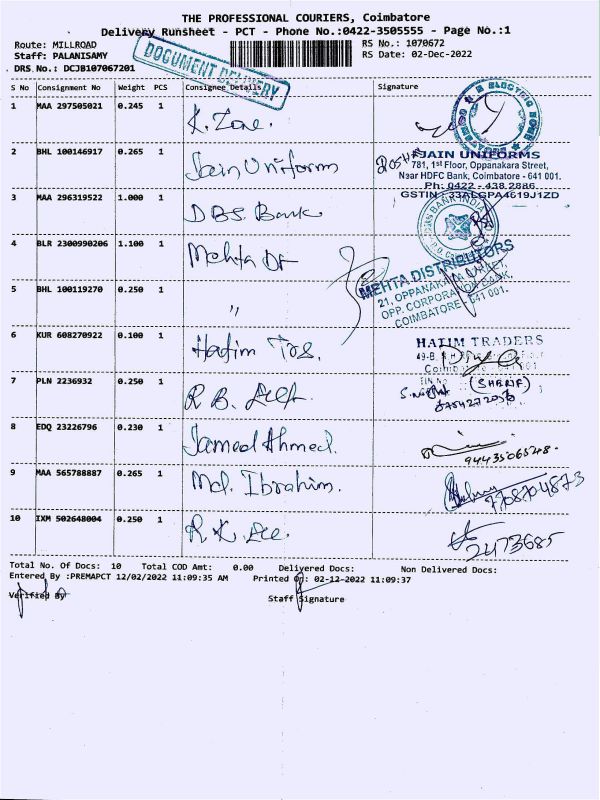 THE PROFESSIONAL COURIERS, Coimbatore
Delivery Runsheet - PCT - Phone No.:0422-3505555 - Page No.:1
Route: MILLROAD
RS No.: 1070672
Staff: PALANISAMY
RS Date: 02-Dec-2022
DRS No.: DCJB107067201
DOCUMENT DELIVERY
S No Consignment No Weight PCS Consignee Details Signature
1 MAA 297505021 0.245 1 K. Zone.
2 BHL 100146917 0.265 1 Jain Uniforms
JAIN UNIFORMS
781, 1st Floor, Oppanakara Street,
Near HDFC Bank, Coimbatore - 641 001.
Ph: 0422 - 438 2886
GSTIN : 33ALGPA4619J1ZD
3 MAA 296319522 1.000 1 DBS. Bank
DBS BANK INDIA
4 BLR 2300990206 1.100 1 Mehta DT
MEHTA DISTRIBUTORS
21, OPPANAKARA STREET,
OPP. CORPORATION BANK,
COIMBATORE - 641 001.
5 BHL 100119270 0.250 1 "
6 KUR 608270922 0.100 1 Hatim Trs.
HATIM TRADERS
49-B,
Coimbatore - 641001
7 PLN 2236932 0.250 1 R B. Acct.
(SHARIF)
8 EDQ 23226796 0.230 1 Jamed Ahmed.
9443506548.
9 MAA 565788887 0.265 1 Md. Ibrahim.
7708704873
10 IXM 502648004 0.250 1 R K. Ace.
2473685
Total No. Of Docs: 10 Total COD Amt: 0.00 Delivered Docs: Non Delivered Docs:
Entered By :PREMAPCT 12/02/2022 11:09:35 AM Printed On: 02-12-2022 11:09:37
Verified By
Staff Signature